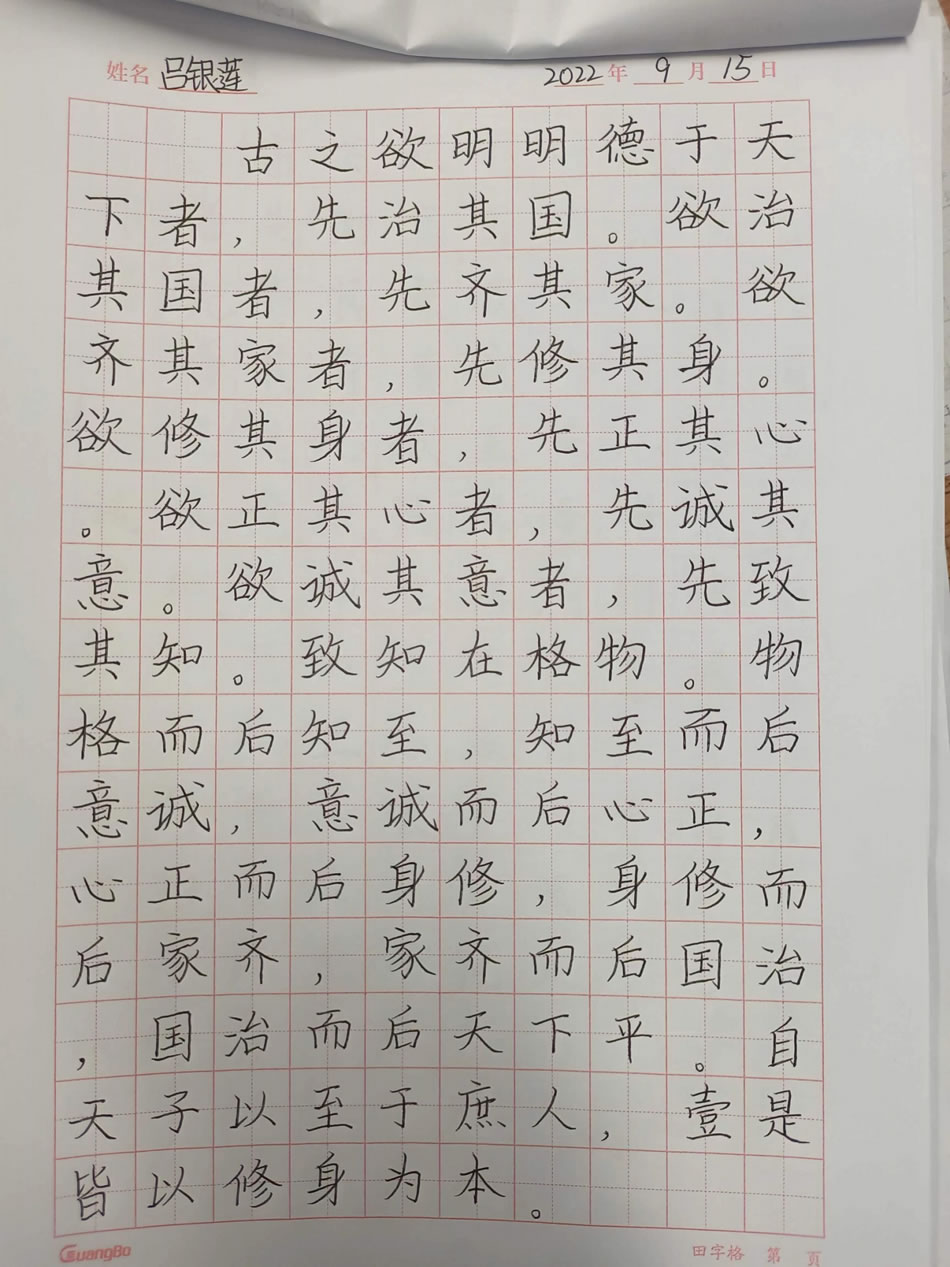 姓名 吕银莲 2022年 9月 15日
古之欲明明德于天
下者,先治其国。欲治
其国者,先齐其家。欲
齐其家者,先修其身。
欲修其身者,先正其心
。欲正其心者,先诚其
意。欲诚其意者,先致
其知。致知在格物。物
格而后知至,知至而后
意诚,意诚而后心正,
心正而后身修,身修而
后家齐,家齐而后国治
,国治而后天下平。自
天子以至于庶人,壹是
皆以修身为本。
GuangBo 田字格 第 页